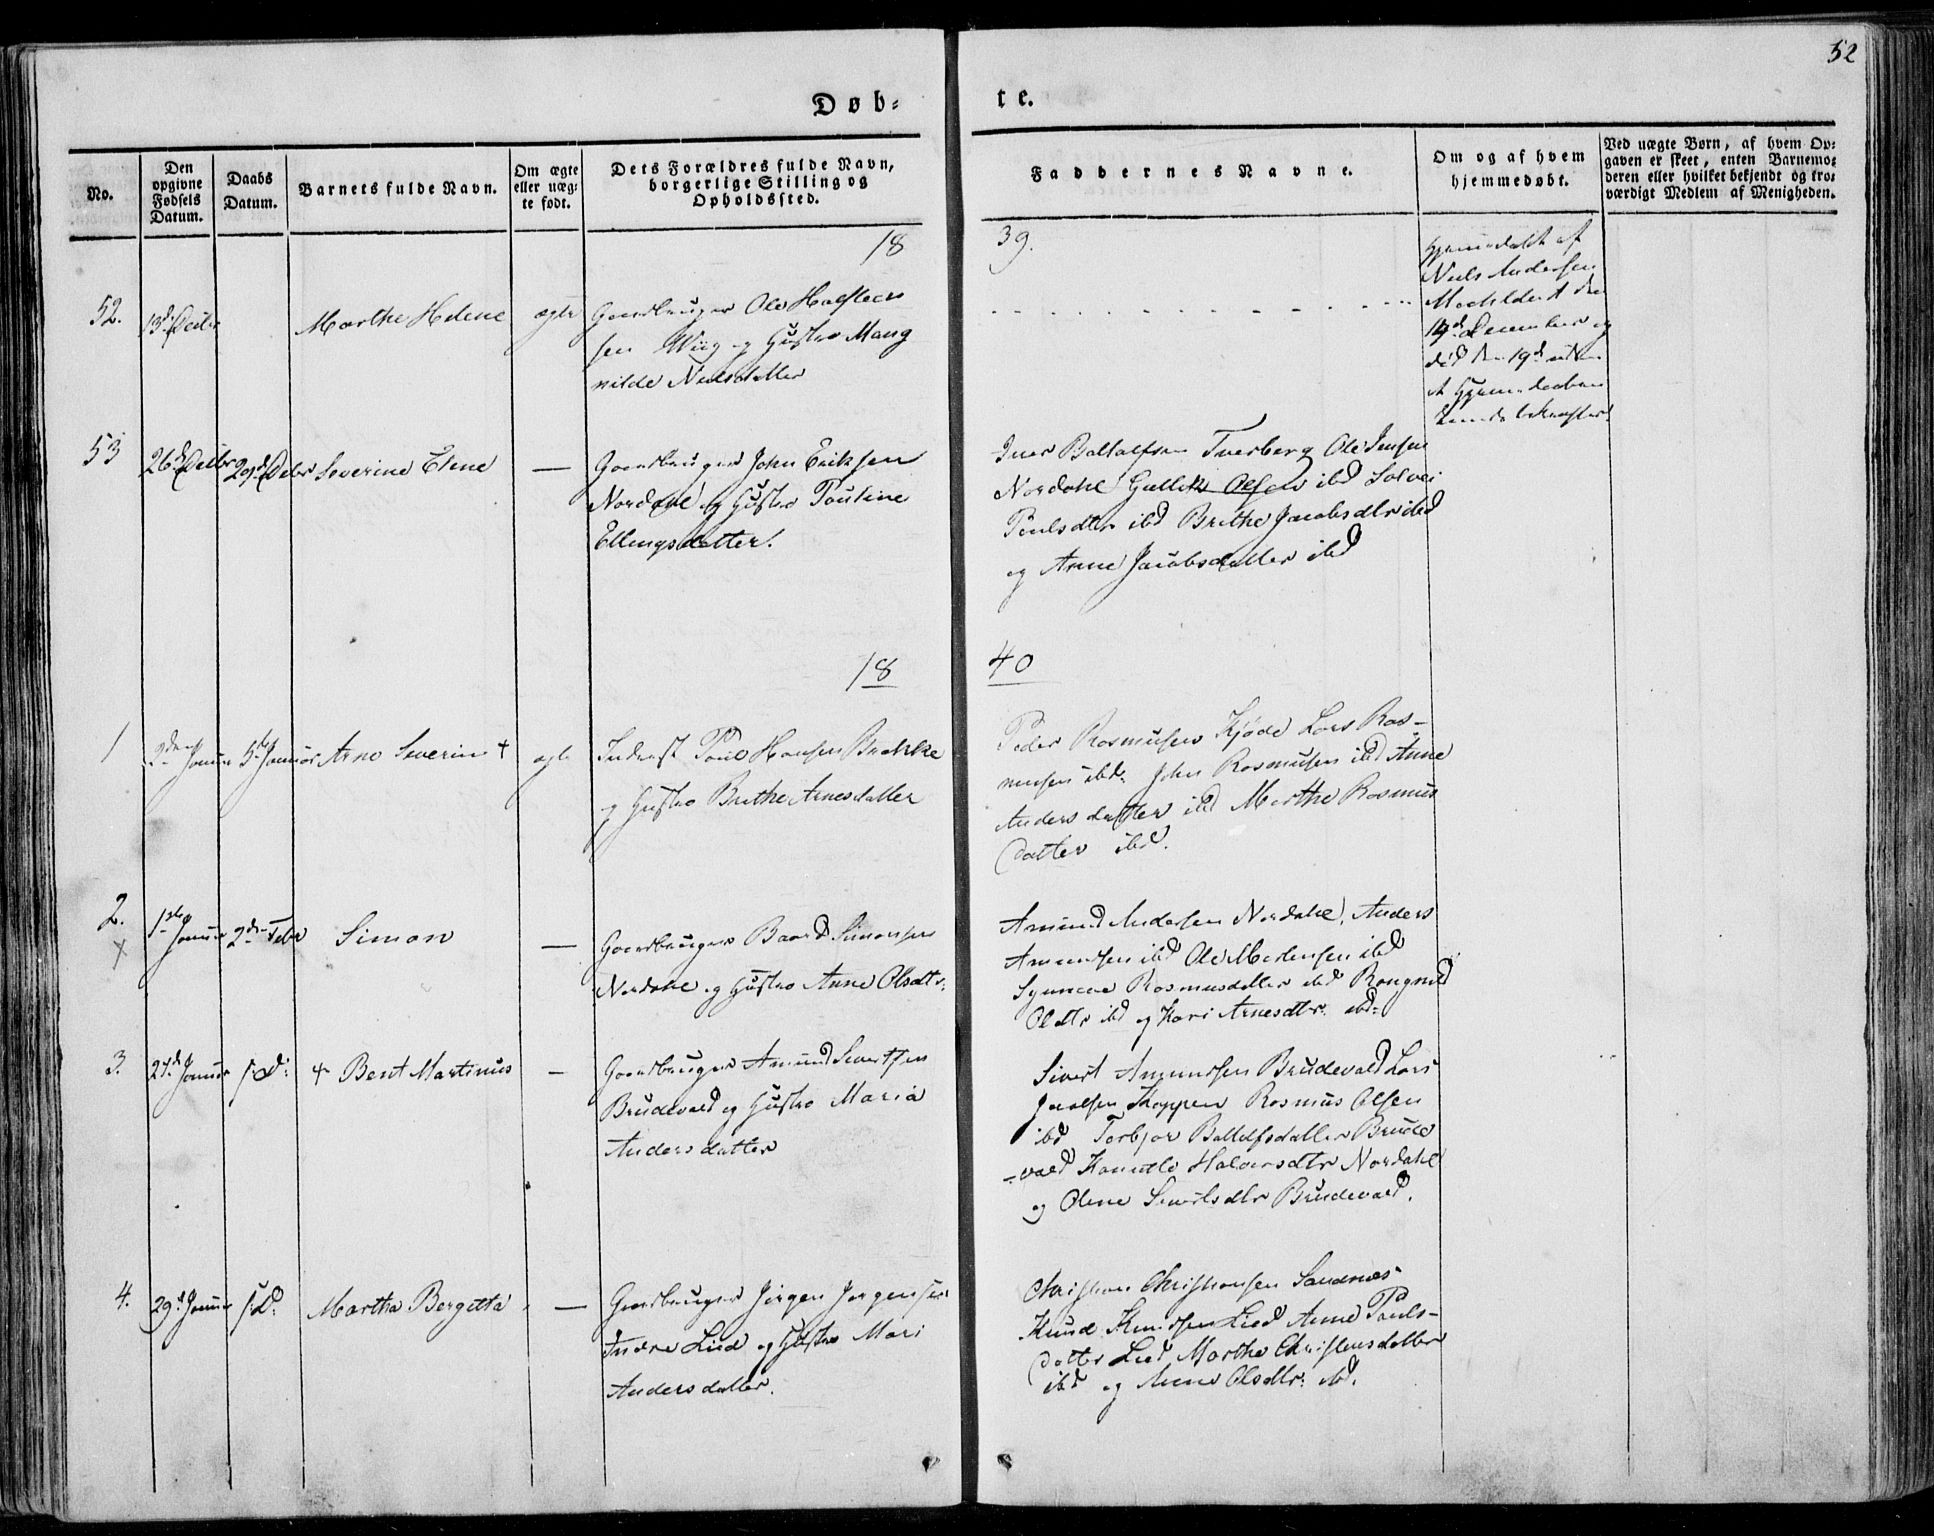 52
Døb-
te.
No.
Den
opgivne
Fødsels
Datum.
Daabs
Datum.
Barnets fulde Navn.
Om ægte
eller uæg-
te født.
Dets Forældres fulde Navn,
borgerlige Stilling og
Opholdssted.
Faddernes Navne.
Om og af hvem
hjemmedøbt.
Ved uægte Børn, af hvem Op-
gaven er skeet, enten Barnemo-
deren eller hvilket bekjendt og tro-
værdigt Medlem af Menigheden.
18
39.
52.
13d Decbr
Marthe Helene
ægte
Gaardbruger Ole Halsteen
sen Wiig og Hustro Mang
nilde Nielsdatter
Hjemmedøbt af
Niels Andersen
den
14d December og
død den 19d uden
at Hjemmedaaben
53
26d Decbr
29d Decbr
Severine Elene
—
Gaardbruger John Eriksen
Nordahl og Hustro Pouline
Ellingsdatter.
Iver Baltolfsen Tverberg Ole Jensen
Nordahl Gullek Olsen ibd Solvei
Poulsdtr ibd Brithe Jacobsdtr ibd
og Anne Jacobsdatter ibd
18
40
1
Januar
5te Januar
Arne Severin +
ægte
Inderst Poul Hansen Brekke
og Hustro Brithe Arnesdatter
Peder Rasmusen Kjøde Lars Ras-
musen ibd. John Rasmusen ibd Anne
Andersdatter ibd Marthe Rasmus
datter ibd.
2.
+
1ste Januar
2den Febr
Simon
—
Gaardbruger Baard Simonsen
Nordahl og Hustro Anne Olsdtr.
Amund Andersen Nordahl, Anders
Amundsen ibd Ole Mortensen ibd
Synneve Rasmusdatter ibd Rangnild
Olsdtr ibd og Kari Arnesdtr. ibd.
3.
27d Januar
s. D.
+ Bent Martinus
—
Gaardbruger Amund Sivertsen
Brudevold og Hustro Maria
Andersdatter
Sivert Amundsen Brudevold Lars
Koppen Rasmus Olsen
ibd Torbjør Baltolfsdatter Brude
-vold Halvorsdtr Nordahl
og Oline Sivertsdtr Brudevold.
4.
29d Januar
s. D.
Martha Bergitta
—
Gaardbruger Jørgen Jørgensen
Indre Lied og Hustro Mari
Andersdatter.
Christian Christiansen Sandnes
Knud Knudsen Lied Anne Pouls-
datter Lied Marthe Christensdatter
ibd og Anne Olsdtr. ibd.